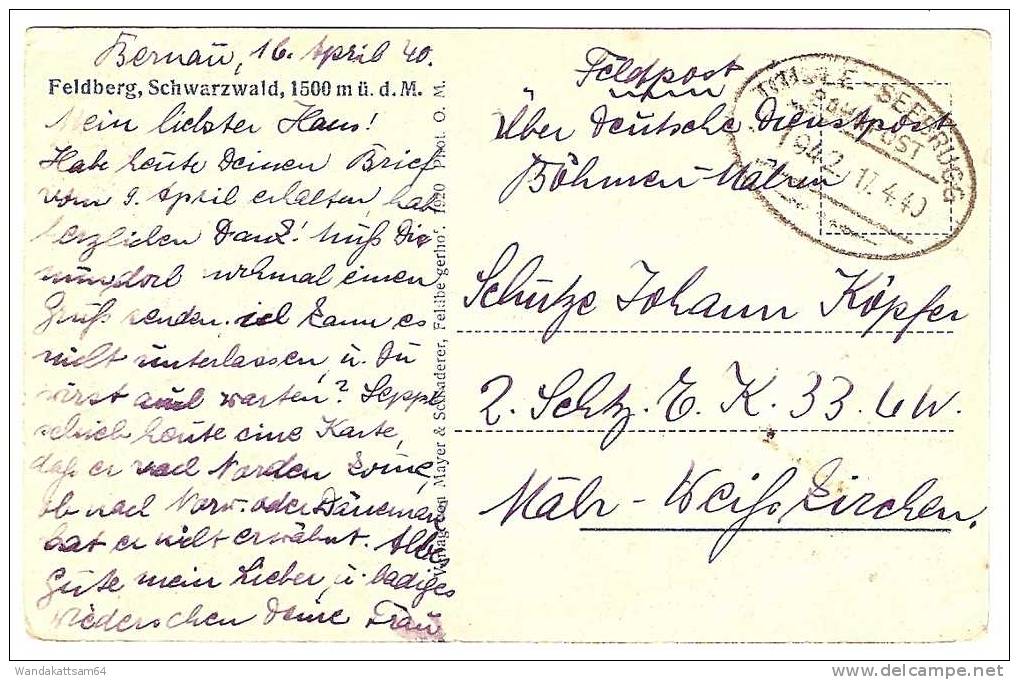 Bernau, 16. April 40.
Feldberg, Schwarzwald, 1500 m ü. d. M.
Mein liebster Hans!
Habe heute Deinen Brief
vom 9. April erhalten, hab
herzlichen Dank! Muß Dir
nochmal einen
Gruß senden. ich kann es
nicht unterlassen, u. Du
wirst auch warten? Seppl
schrieb heute eine Karte,
daß er nach Norden komme,
ob nach Norw. oder Dänemark
hat er nicht erwähnt. Alles
Gute mein Lieber, u. baldiges
wiedersehen Deine Frau
Verlag von Mayer & Schnaderer, Feldbergerhof. 1920 Phot. O. M.
Feldpost
Über Deutsche Dienstpost
Böhmen-Mähren
SEEBRUGG
BAHNPOST
17.4.40
Schütze Johann Köpfer
2. Schtz. E. K. 33. 6 W.
Mähr-Weißkirchen.
Wandakattsam64
www.delcampe.net